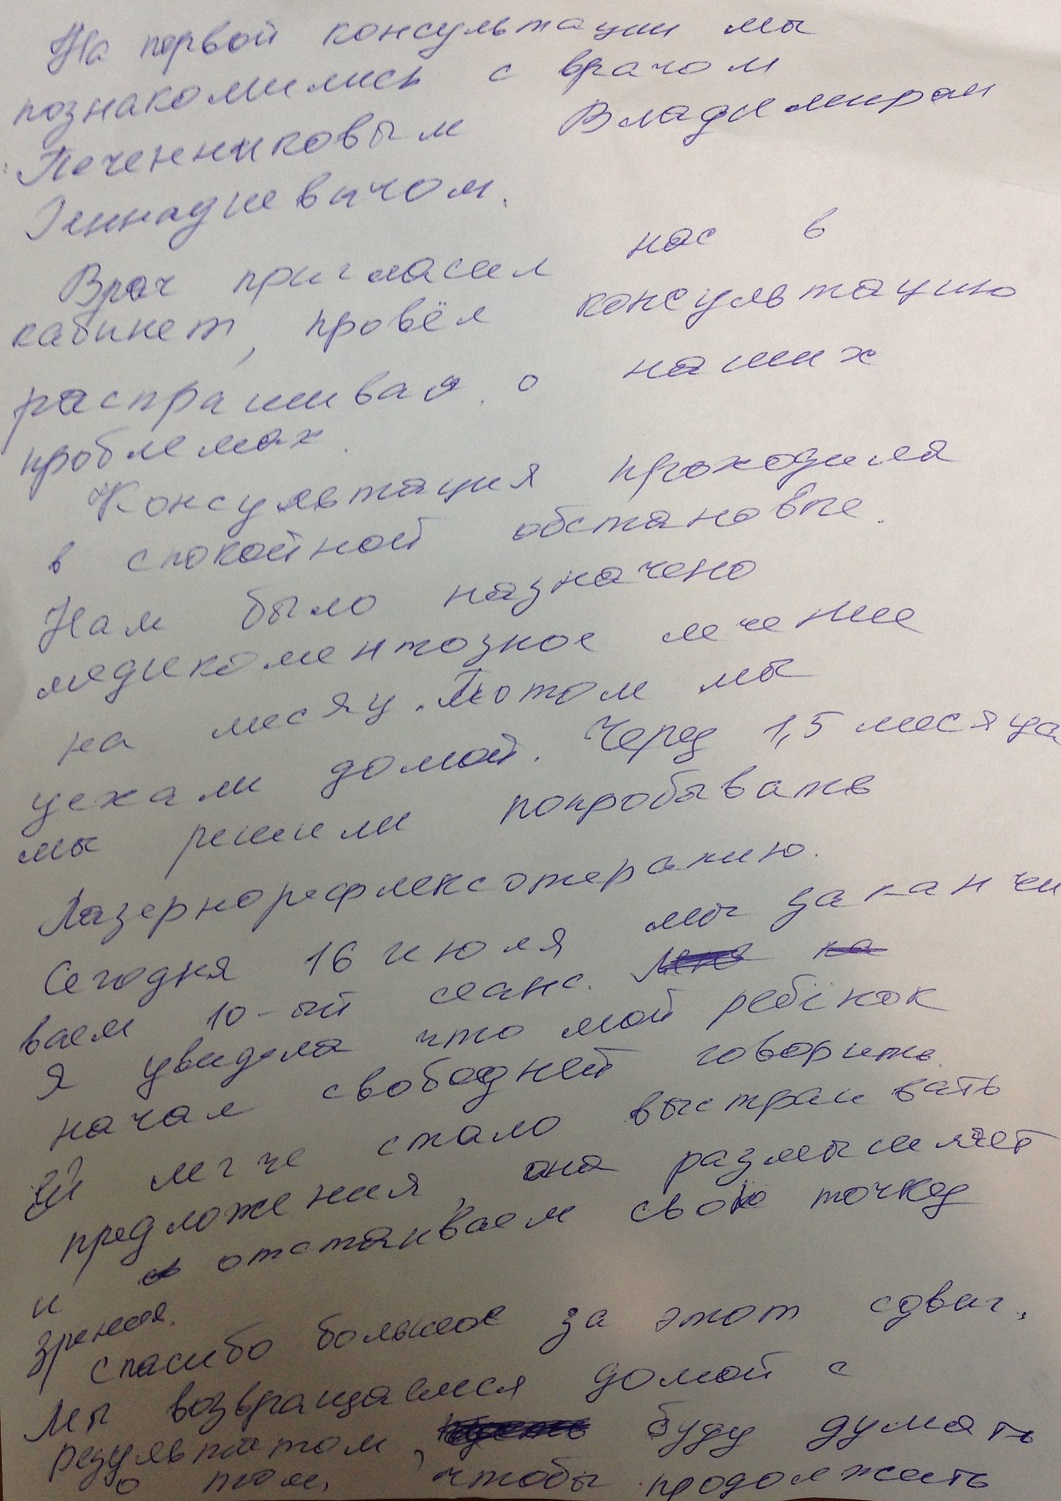 На первой консультации мы
познакомились с врачом
Печенниковым Владимирам
Геннадиевичом.
Врач пригласил нас в
кабинет, провёл консультацию
распрашивая о наших
проблемах.
Консультация проходила
в спокойной обстановке.
Нам было назначено
медикоментозное лечение
на месяц. Потом мы
уехали домой. Через 1,5 месяца
мы решили попробывать
Лазернорефлексотерапию.
Сегодня 16 июля мы заканчи
ваем 10-ый сеанс.
Я увидела что мой ребёнок
начал свободней говорить.
Ей легче стало выстраивать
предложения, она размышляет
и отстаиваем свою точку
зрения.
Спасибо большое за этот сдвиг.
Мы возвращаемся домой с
результатом, буду думать
о том, чтобы продолжить